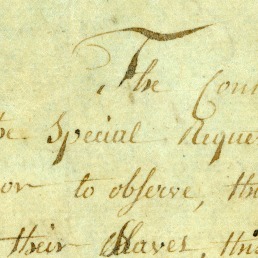 The Com
the Special Reque
or to observe, th
their Slaves, th